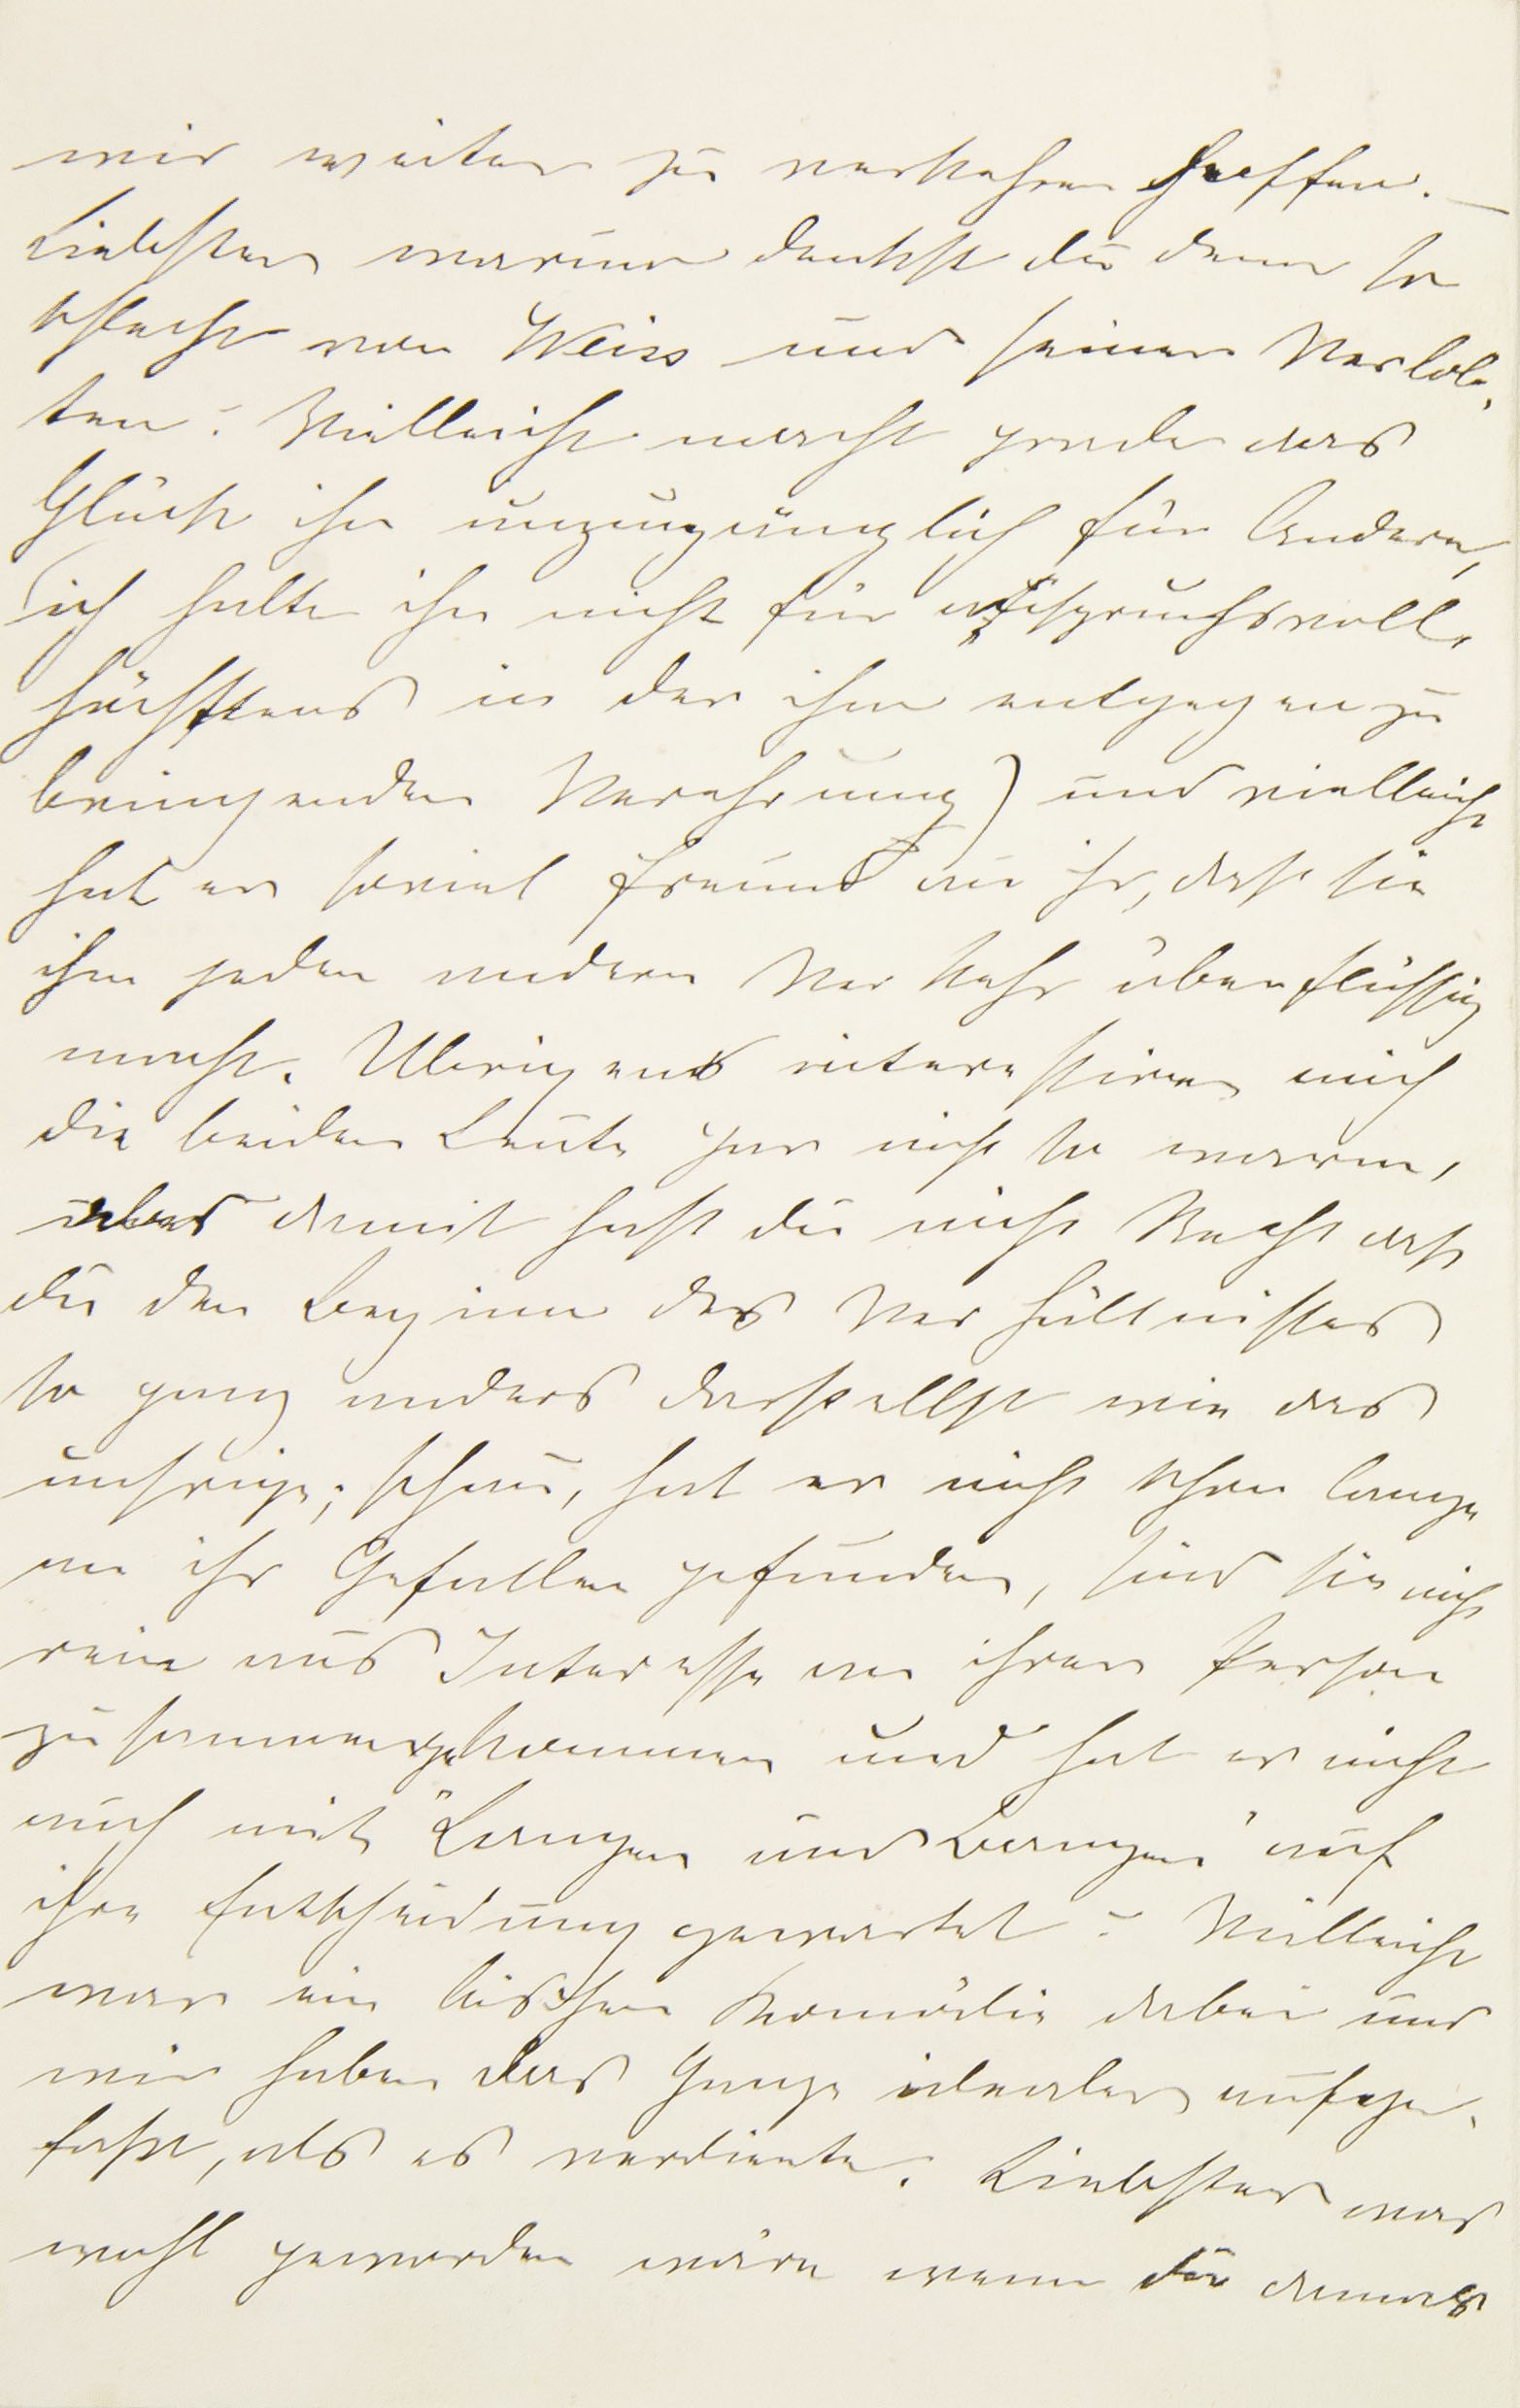 mir weiter zu verkehren hoffen. —
Liebster warum denkst du denn so
schlecht von Weiss und seiner Verlob-
ten? Vielleicht macht grade das
Glück ihn unzugänglich für Andere,
(ich halte ihn nicht für anspruchsvoll,
höchstens in der ihm entgegen zu
bringenden Verehrung) und vielleicht
hat er soviel Freund an ihr, daß sie
ihm jeden andern Verkehr überflüssig
macht. Übrigens interessiren mich
die beiden Leute gar nicht so warm,
aber damit hast du nicht Recht daß
du den Beginn des Verhältnisses
so ganz anders darstellst wie das
unsrige; schau, hat er nicht schon lange
an ihr Gefallen gefunden, sind sie nicht
rein aus Interesse an ihrer Person
zusammengekommen und hat er nicht
auch mit "Langen und Bangen" auf
ihre Entscheidung gewartet? Vielleicht
war ein bischen Komödie dabei und
wir haben das Ganze idealer aufge-
faßt, als es verdiente. Liebster was
wohl geworden wäre wenn du damals